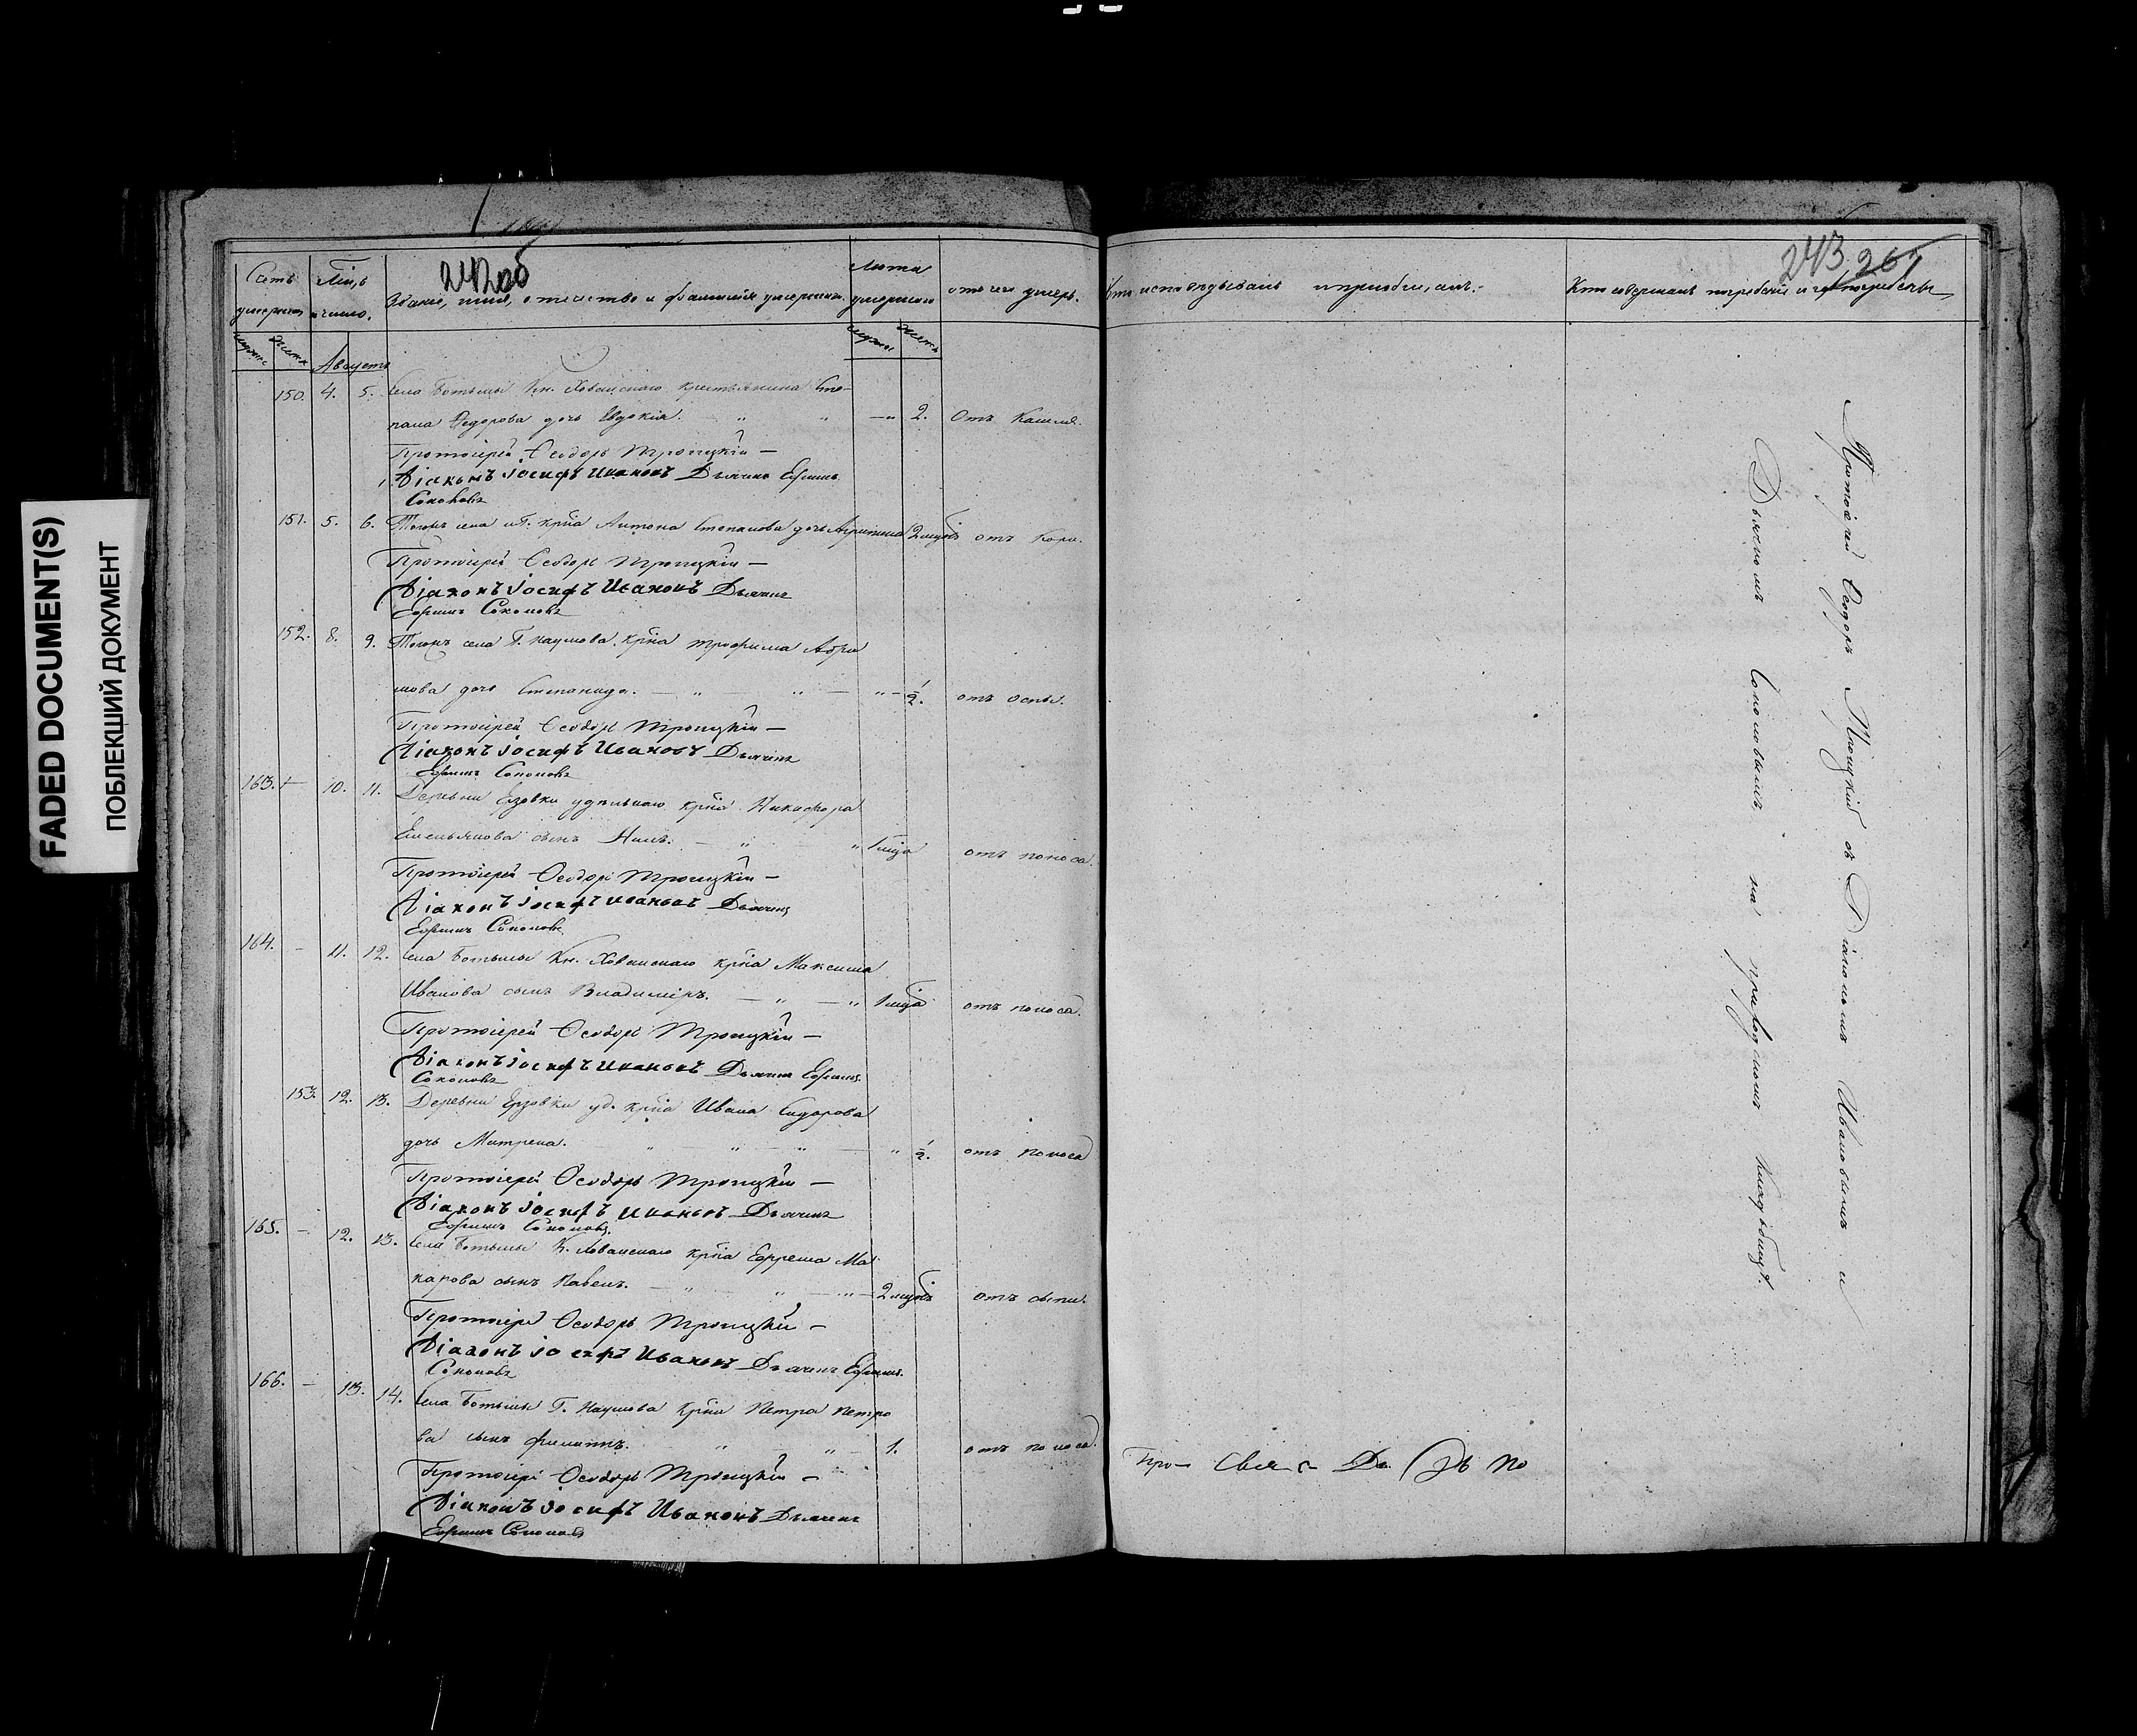 FADED DOCUMENT(S)
ПОБЛЕКШИЙ ДОКУМЕНТ
242об
Счетъ умершихъ
Мѣс. и число.
Званіе, имя, отечество и фамилія умершихъ.
Лета умершаго
отъ чего умеръ.
Кто исповедывалъ и приобщ.
243 261
Кто совершалъ погребеніе и где погребены
Августъ
150. 4. 5. Села Ботьмы Кн. Хованскаго крестьянина Сте-
пана Федорова дочь Евдокія. 2. Отъ Кашля.
Протоіерей Ѳеодоръ Троицкій —
Діаконъ Іосифъ Ивановъ Дьячекъ Ефимъ
Соколовъ
151. 5. 6. Тогожъ села крна Антона Степанова дочь 2 отъ Кори.
Протоіерей Ѳеодоръ Троицкій —
Діаконъ Іосифъ Ивановъ Дьячекъ
Ефимъ Соколовъ
152. 8. 9. Тогожъ села Г. Наумова крна Трофима Абра
мова дочь Степанида. — 1/2. отъ Оспы.
Протоіерей Ѳеодоръ Троицкій —
Діаконъ Іосифъ Ивановъ Дьячекъ
Ефимъ Соколовъ
163. 10. 11. Деревни Ерзовки удѣльнаго крна Никифора
Емельянова сынъ 1 отъ поноса.
Протоіерей Ѳеодоръ Троицкій —
Діаконъ Іосифъ Ивановъ Дьячекъ
Ефимъ Соколовъ
164. — 11. 12. Села Ботьмы Кн. Хованскаго крна Максима
Иванова сынъ Владиміръ. — 1 отъ поноса.
Протоіерей Ѳеодоръ Троицкій —
Діаконъ Іосифъ Ивановъ Дьячекъ Ефимъ
Соколовъ
153. 12. 13. Деревни Ерзовки уд. крна Ивана Сидорова
дочь Матрена. 1/2. отъ поноса
Протоіерей Ѳеодоръ Троицкій —
Діаконъ Іосифъ Ивановъ Дьячекъ
Ефимъ Соколовъ
165. — 12. 13. Села Ботьмы К. Хованскаго крна Ефрема Ма
карова сынъ Павелъ. — 2 отъ сыпи.
Протоіерей Ѳеодоръ Троицкій —
Діаконъ Іосифъ Ивановъ Дьячекъ Ефимъ
Соколовъ
166. — 13. 14. Села Ботьмы Г. Наумова крна Петра Петро
ва сынъ Филиппъ. 1. отъ поноса.
Протоіерей Ѳеодоръ Троицкій —
Діаконъ Іосифъ Ивановъ Дьячекъ
Ефимъ Соколовъ
Протоіерей Ѳеодоръ Троицкій съ Діакономъ Ивановымъ и
Дьячкомъ Соколовымъ на приходскомъ кладбищѣ.